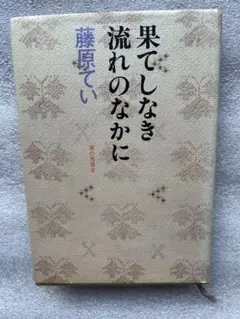 果てしなき
流れのなかに
藤原てい